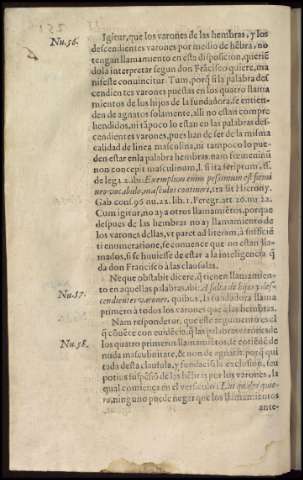 Nu.56. Igitur, que los varones de las hembras, y los
descendientes varones por medio de hẽbra, no
tengan llamamiento en esta disposicion, queriẽ
dola interpretar segun don Frãcisco quiere, ma
nifeste conuincitur. Tum, porq̃ si la palabra des
cendientes varones puestas en los quatro llama
mientos de los hijos de la fundadora, se entien
den de agnatos solamente, alli no estan compre
hendidos, ni tãpoco lo estan en las palabras des-
cendientes varones, pues han de ser de la misma
calidad de linea masculina, ni tampoco lo pue-
den estar en la palabra hembras. nam fœmeninũ
non concepit masculinum, l. si ita scriptum, ff.
de lega 2. ibi: Exemplum enim pessimum est fœmi
neo vocabulo, masculos contineri, tradit Hierony.
Gab. conf. 96. nu. 22. lib. 1. Peregr. art. 26. nu. 22.
Cum igitur, no ay a otros llamamiẽtos, porque
despues de las hembras no ay llamamiento de
los varones dellas, vt patet ad literam, à sufficiẽ
ti enumeratione, se conuence que no estan lla-
mados, si se huuiesse de estar a la inteligencia q̃
da don Francisco a las clausulas.
Neque obstabit dicere, q̃ tienen llamamiẽn-
Nu.57. to en aquellas palabras, ibi: A falta de hijos y des-
cendientes varones, quibus, la fundadora llama
primero à todos los varones que à las hembras.
Nam respondetor, que este argumento es el
Nu.58. q̃ cõuẽce con euidẽcia, q̃ las palabras varones de
los quatro primeros llamamiẽtos, se entiẽdẽ de
nuda masculinitate, & non de agnatis. porq̃ qui
tada desta clausula, y fundaciõ la exclusion, seu
potius suspẽsiõ de las hẽbras por los varones, la
qual comiença en el versiculo:
ro, ninguno puede negar que los llamamientos
ante-